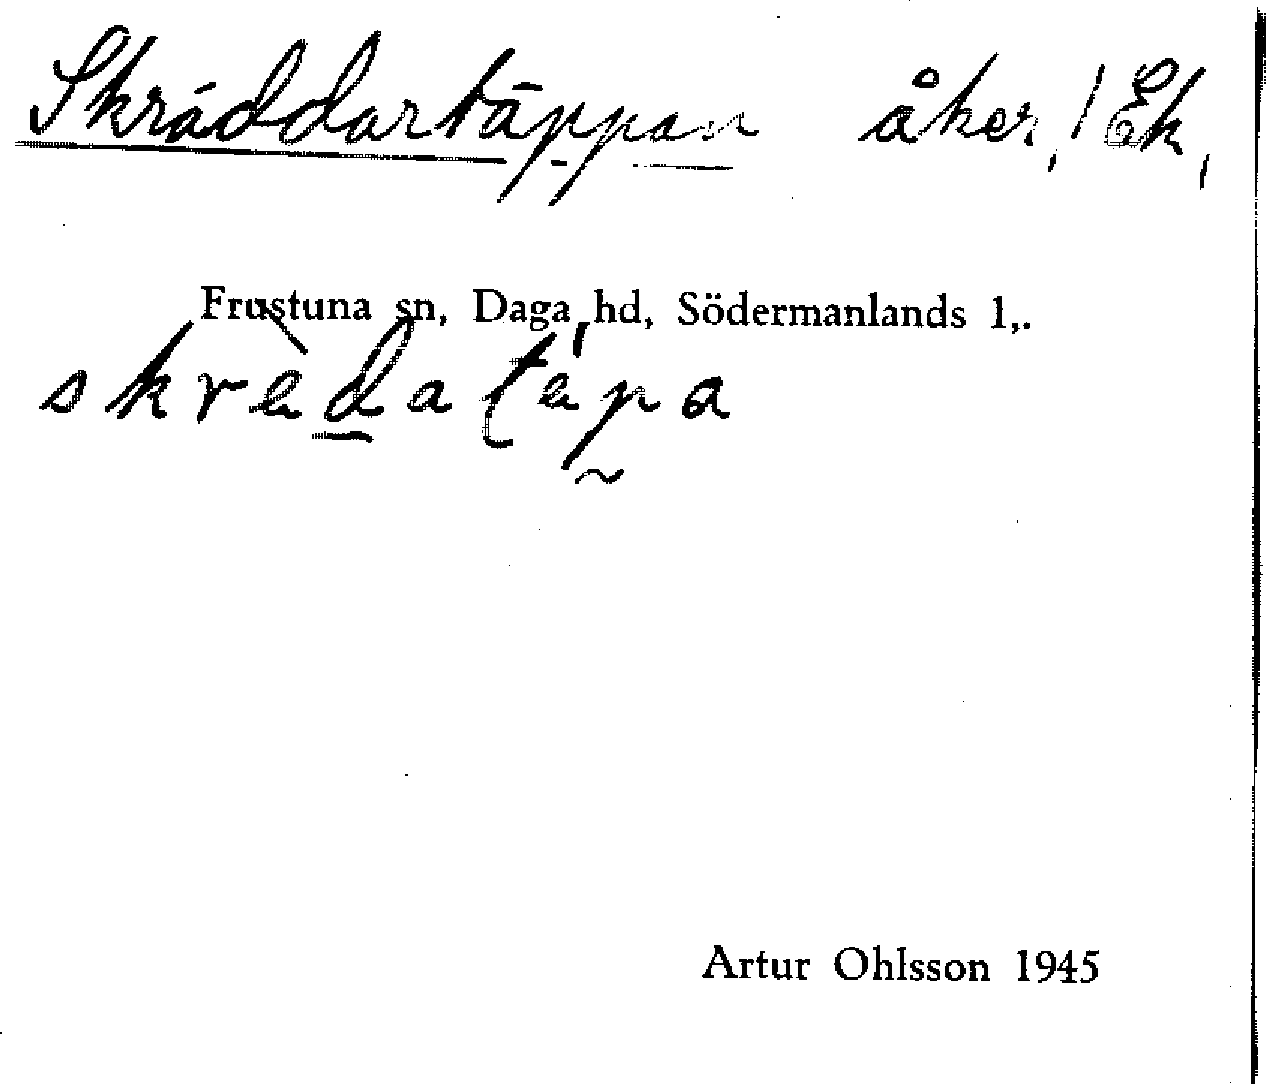 Skräddartäppan åker, / Ek,
Frustuna sn, Daga hd, Södermanlands l,.
skrèdatépa
Artur Ohlsson 1945